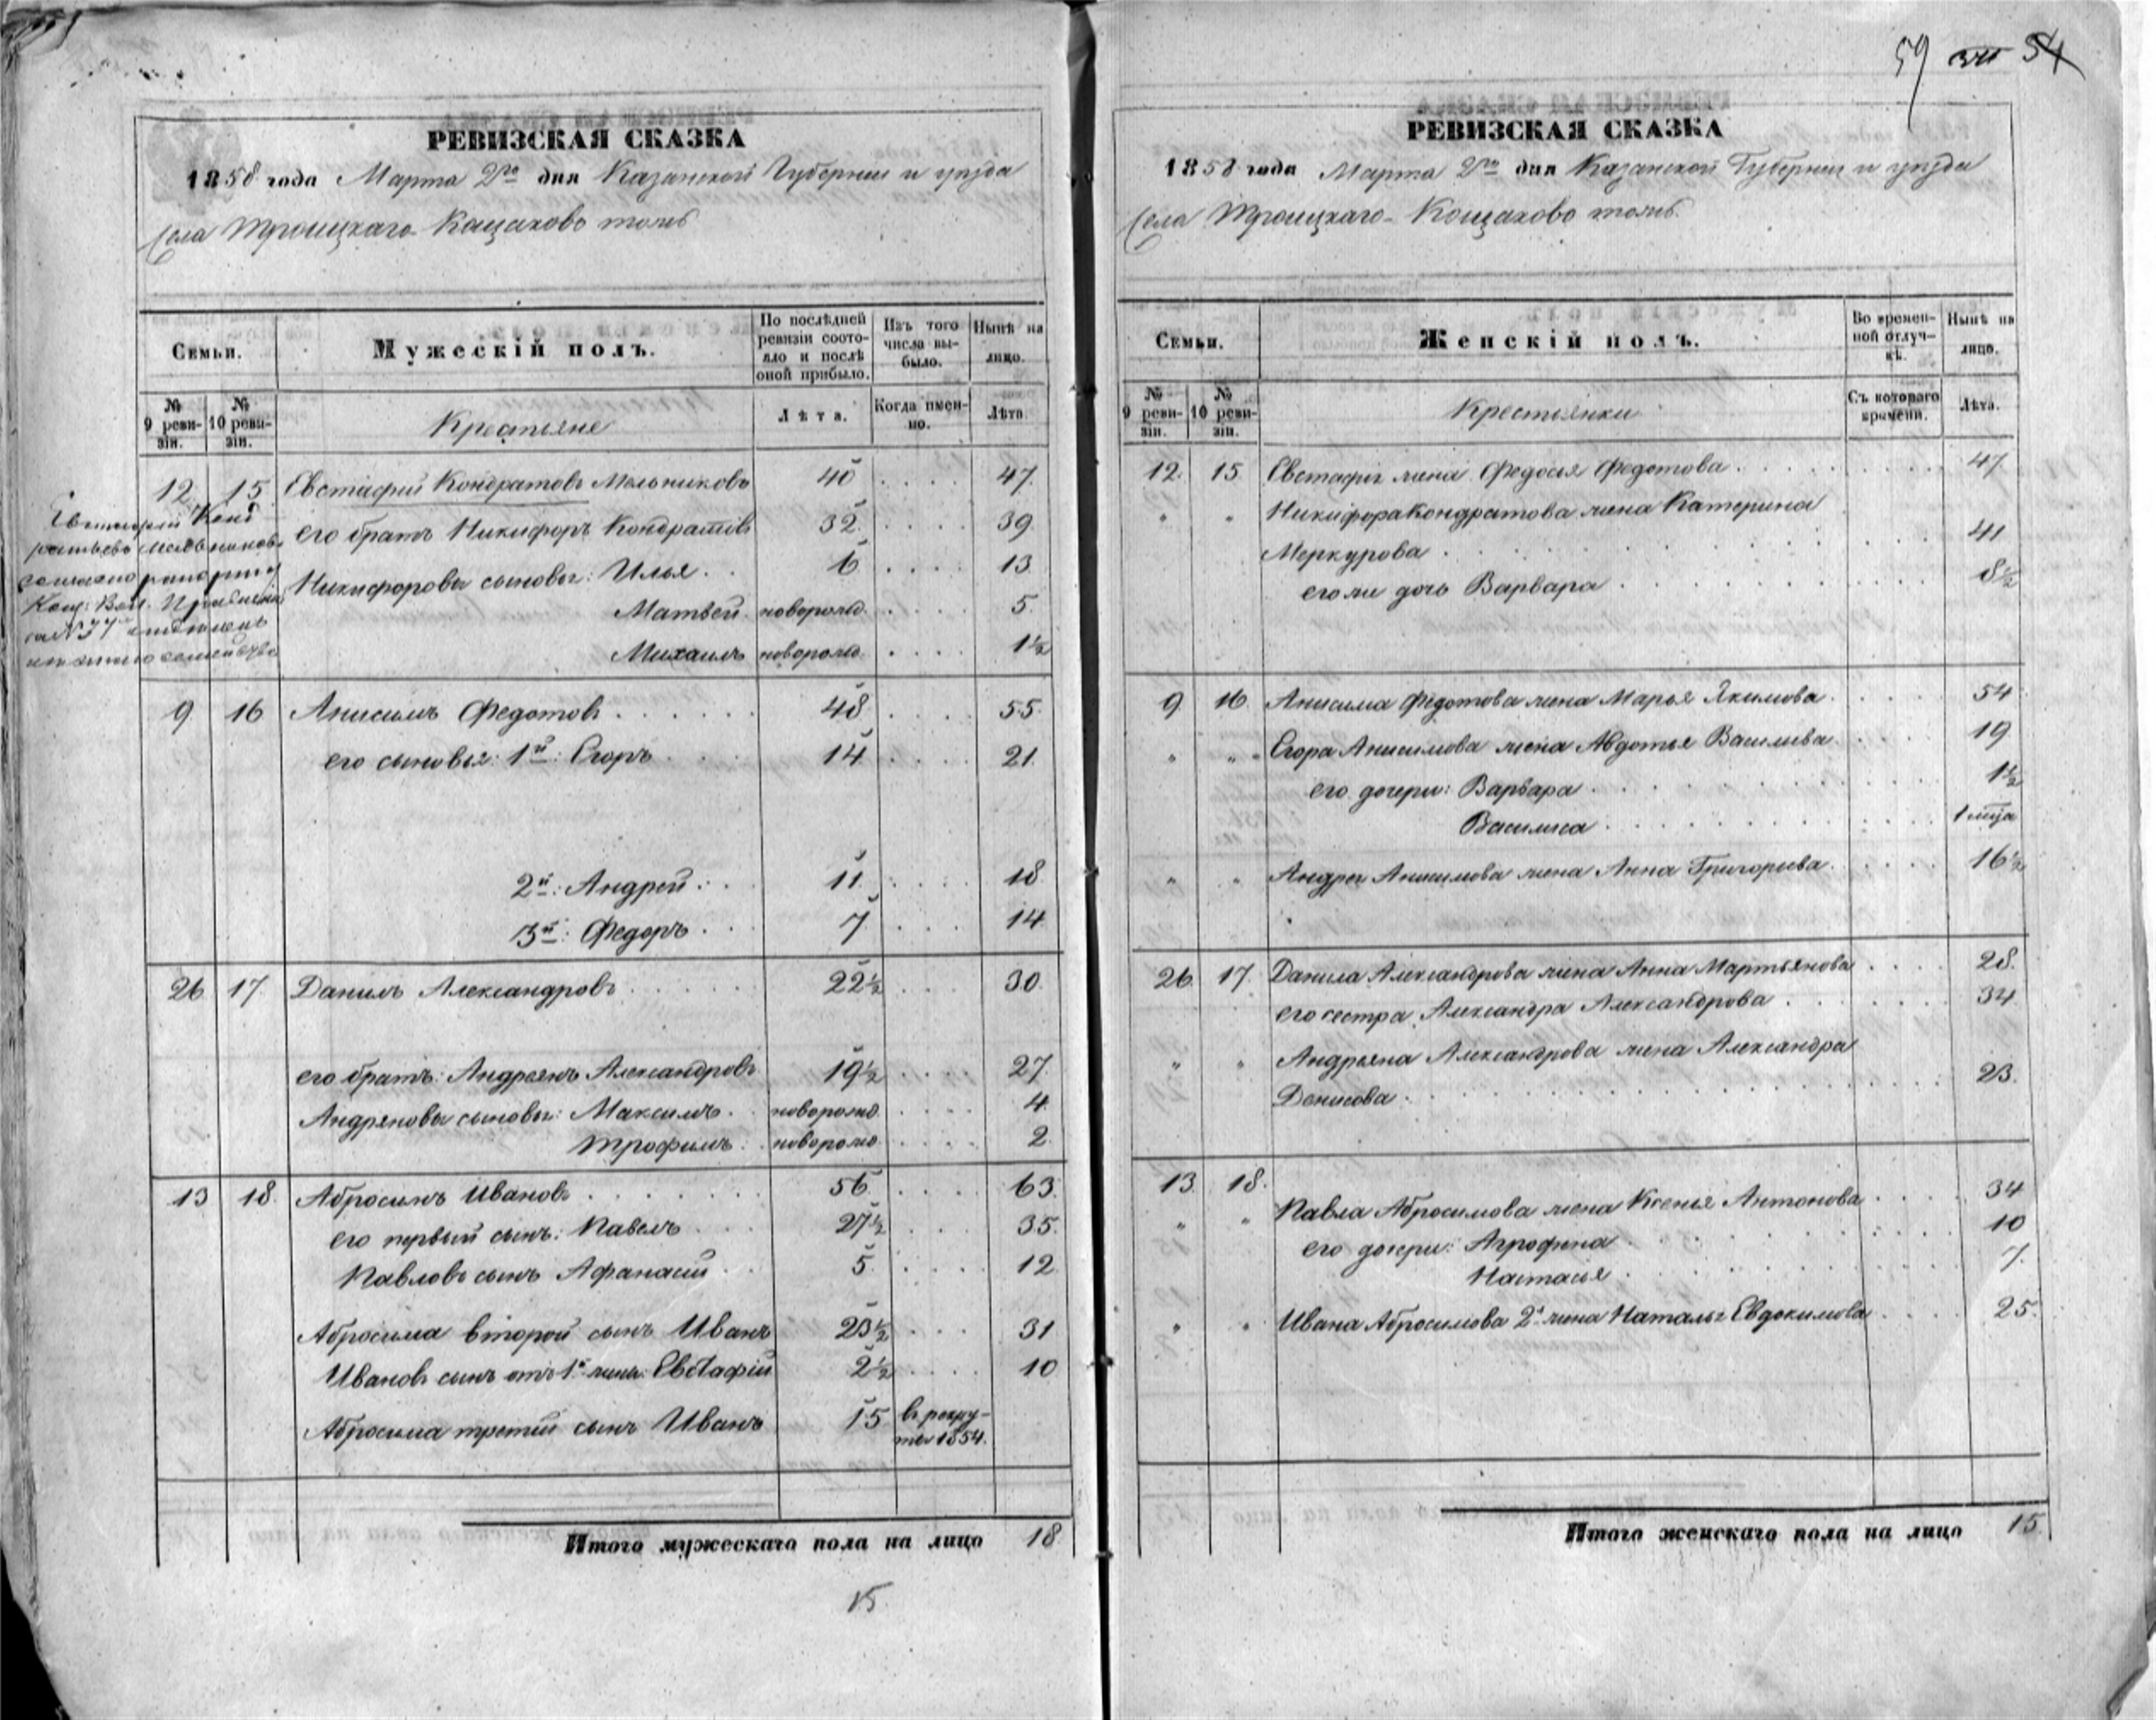 59 54
РЕВИЗСКАЯ СКАЗКА
1858 года Марта 2го дня Казанской Губернии и уезда
Села Троицкаго Кощаково тожъ
Семьи.
Мужескій полъ.
По послѣдней ревизіи состояло и послѣ оной прибыло.
Изъ того числа выбыло.
Нынѣ на лицо.
№ 9 ревизіи.
№ 10 ревизіи.
Крестьяне
Лѣта.
Когда именно.
Лѣта.
12. 15 Евстафій Кондратовъ Мельниковъ 40 47.
его братъ Никифоръ Кондратовъ 32. 39.
Никифоровы сыновья: Илья 6 13
Матвей новорожд. 5.
Михаилъ новорожд. 1½
Евстафій Кондратьевъ Мельниковъ согласно рапорту Кощ: Вол. Правленія за № 37
9 16 Анисимъ Федотовъ 48 55.
его сыновья: 1й: Егоръ 14 21.
2й: Андрей 11. 18.
3й: Федоръ 7. 14
26 17. Данилъ Александровъ 22½ 30.
его братъ: Андреянъ Александровъ 19½ 27.
Андреяновы сыновья: Максимъ новорожд. 4
Трофимъ новорожд 2.
13 18. Абросимъ Ивановъ 56. 63.
его первый сынъ: Павелъ 27½ 35.
Павловъ сынъ Афанасій 5. 12
Абросима второй сынъ Иванъ 23½ 31
Ивановъ сынъ отъ 1й жены Евстафій 2½ 10
Абросима третій сынъ Иванъ 15 въ рекруты 1854.
Итого мужескаго пола на лицо 18
15
РЕВИЗСКАЯ СКАЗКА
1858 года Марта 2го дня Казанской Губернии и уезда
Села Троицкаго-Кощаково тожъ.
Семьи.
Женскій полъ.
Во временной отлучкѣ.
Нынѣ на лицо.
№ 9 ревизіи.
№ 10 ревизіи.
Крестьянки
Съ котораго времени.
Лѣта.
12. 15 Евстафія жена Федосья Федотова 47.
" " Никифора Кондратова жена Катерина
Меркурова 41
его же дочь Варвара 8½
9 16. Анисима Федотова жена Марья Якимова 54
" " Егора Анисимова жена Авдотья Васильева 19
его дочери: Варвара 1½
Василиса 1 мца
" " Андрея Анисимова жена Анна Григорьева 16½
26. 17. Данила Александрова жена Анна Мартьянова 28.
его сестра Александра Александрова 34
" " Андреяна Александрова жена Александра
Денисова 23.
13 18.
" " Павла Абросимова жена Ксенья Антонова 34
его дочери: Агрофена 10
Настасья 7.
" " Ивана Абросимова 2я жена Наталья Евдокимова 25.
Итого женскаго пола на лицо 15.